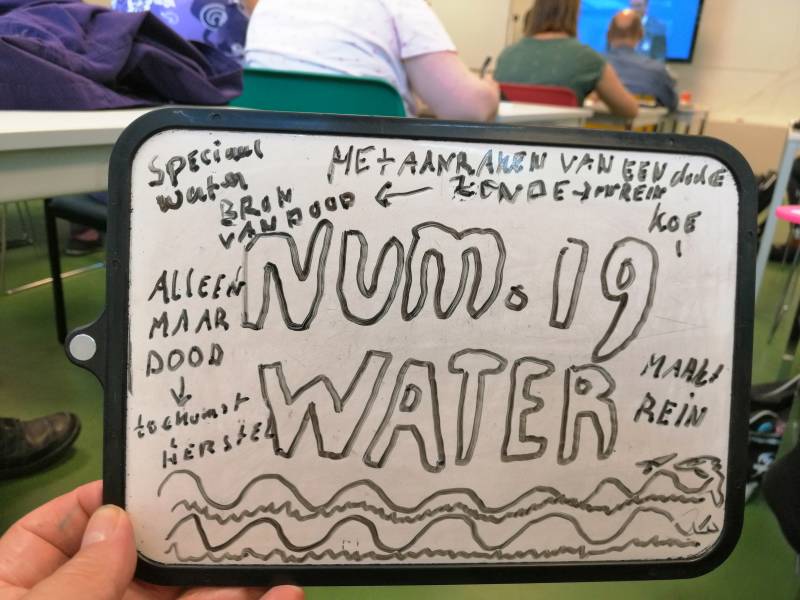 Speciaal
water
MET AANRAKEN VAN EEN dode
ZONDE → onrein
KOE
BRON ←
VAN DOOD
NUM. 19
WATER
ALLEEN
MAAR
DOOD
↓
toekomst
HERSTEL
MAAKT
REIN